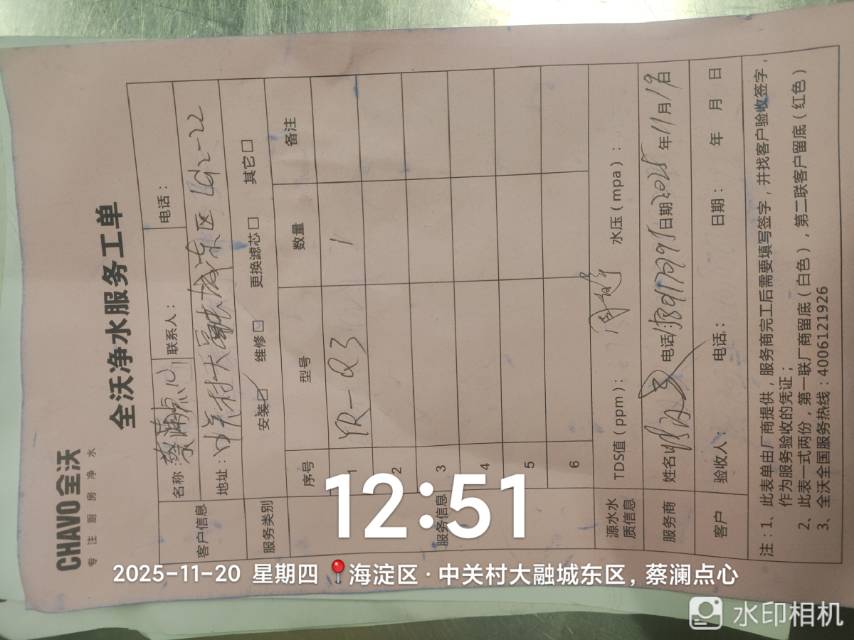 CHAVO全沃
专注厨房净水
全沃净水服务工单
客户信息 名称：蔡澜点心 联系人： 电话：
地址：中关村大融城东区 LG2-22
服务类别 安装☑ 维修☐ 更换滤芯☐ 其它☐
服务信息 序号 型号 数量 备注
1 YR-Q3 1
2
3
4
5
6
源水水质信息 TDS值（ppm）： 水压（mpa）：
服务商 姓名 电话 日期 2025年11月19日
客户 验收人： 电话： 日期： 年 月 日
注：1、此表单由厂商提供，服务商完工后需要填写签字，并找客户验收签字，
作为服务验收的凭证；
2、此表一式两份，第一联厂商留底（白色），第二联客户留底（红色）
3、全沃全国服务热线：4006121926
12:51
2025-11-20 星期四 海淀区·中关村大融城东区，蔡澜点心
水印相机